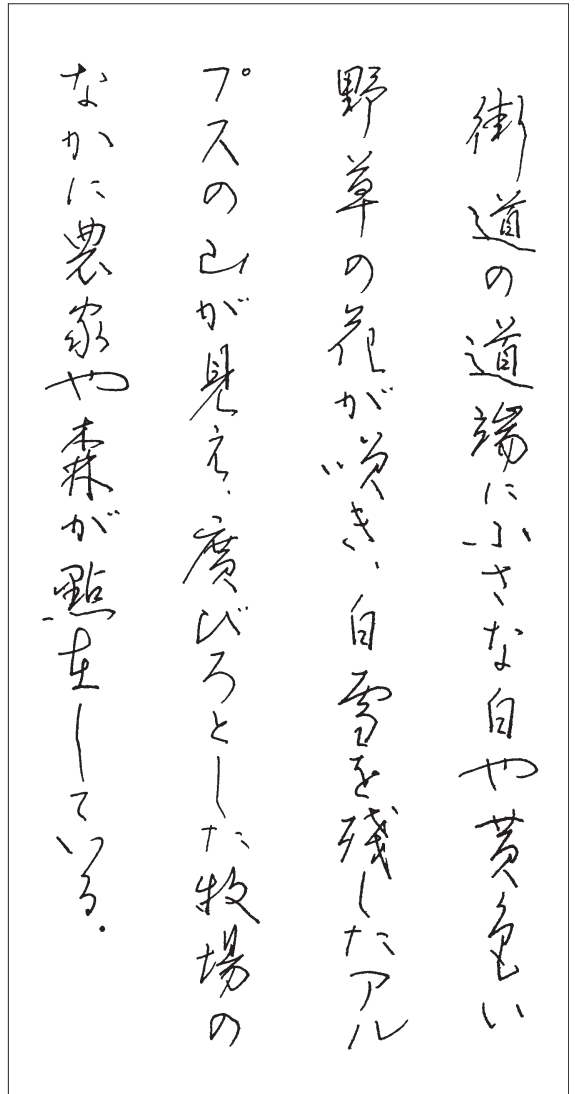 街道の道端に小さな白や黄色い
野草の花が咲き、白雪を残したアル
プスの山が見え、廣びろとした牧場の
なかに農家や森が點在している.